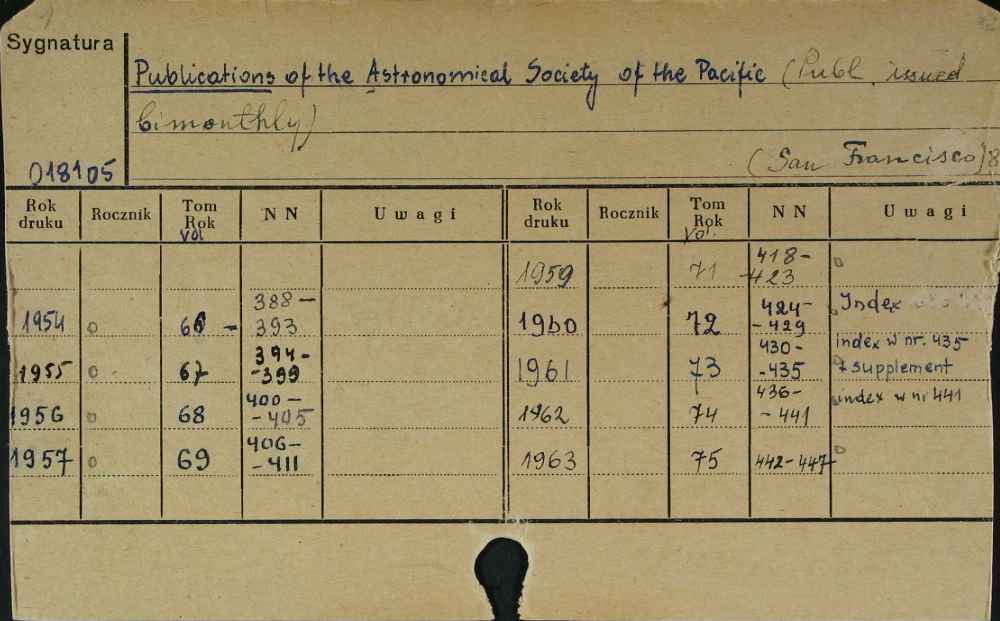 Sygnatura
Publications of the Astronomical Society of the Pacific (Publ. issued
bimonthly)
(San Francisco) 8
018105
Rok druku Rocznik Tom Rok Vol NN Uwagi Rok druku Rocznik Tom Rok Vol. NN Uwagi
1959 71 418-
423
1954 66 - 388-
393
1960 72 424-
-429 Index
1955 67 394-
-399
1961 73 430-
-435 index w nr. 435
+ supplement
1956 68 400-
-405
1962 74 436-
-441 index w nr 441
1957 69 406-
-411
1963 75 442-447